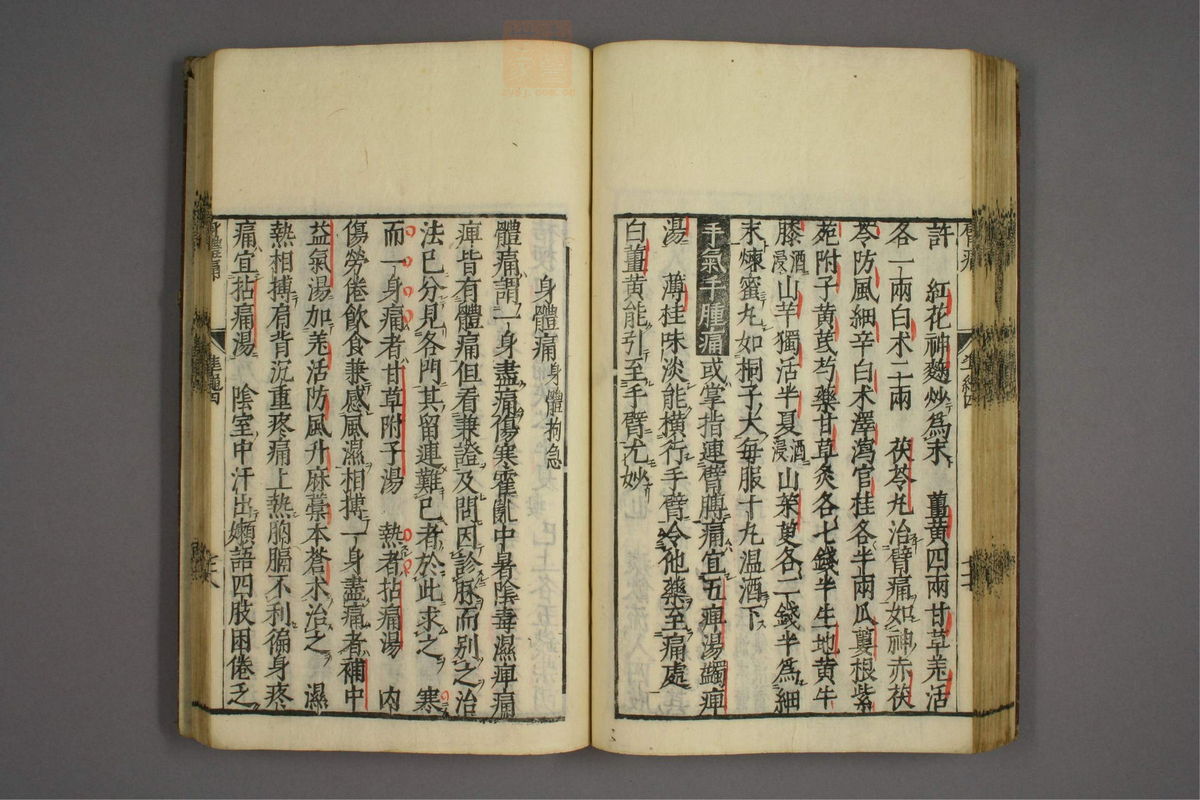 許　紅花神麯炒為末　薑黃四兩甘草羗活
各一兩白术二兩　茯苓丸治臂痛如神赤茯
苓防風細辛白术澤瀉官桂各半兩瓜蔞根紫
菀附子黃茋芍藥甘草炙各七錢半生地黃牛
膝酒浸山芋獨活半夏酒浸山茱萸各二錢半為細
末煉蜜丸如桐子大每服十九温酒下
手氣手腫痛或掌指連臂膊痛宜五痺湯蠲痺
湯　薄桂味淡能橫行手臂令他藥至痛處
白薑黃能引至手臂尤妙
身體痛身體拘急
體痛謂一身盡痛傷寒霍亂中暑陰毒濕痺痛
痺皆有體痛但看兼證及問因診脉而別之治
法已分見各門其留連難已者於此求之　寒
而一身痛者甘草附子湯　熱者拈痛湯　内
傷勞倦飲食兼感風濕相搏一身盡痛者補中
益氣湯加羗活防風升麻藁本蒼术治之　濕
熱相搏肩背沉重疼痛上熱胸膈不利徧身疼
痛宜拈痛湯　陰室中汗出嬾語四肢困倦乏